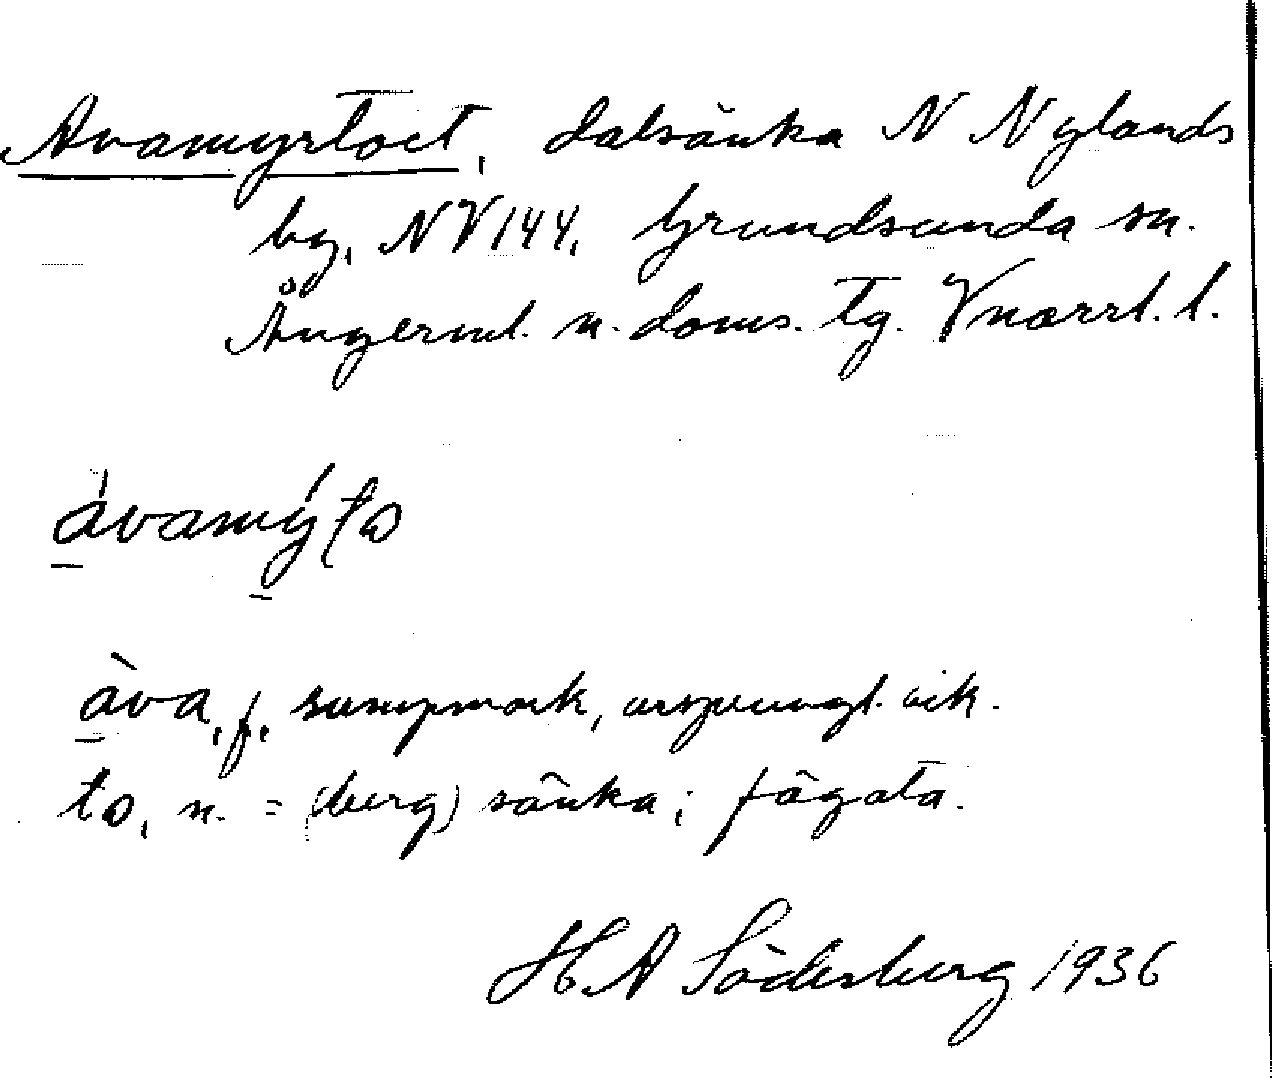 Avamyrtoet, dalsänka N Nylands
by, NV 144, Grundsunda sn.
Ångerml. n. doms. tg. Vnorrl. l.
ávamýťo
àva, f, sumpmark, ursprungl. vik.
to, n. = (berg) sänka; fågata.
H A Söderberg 1936